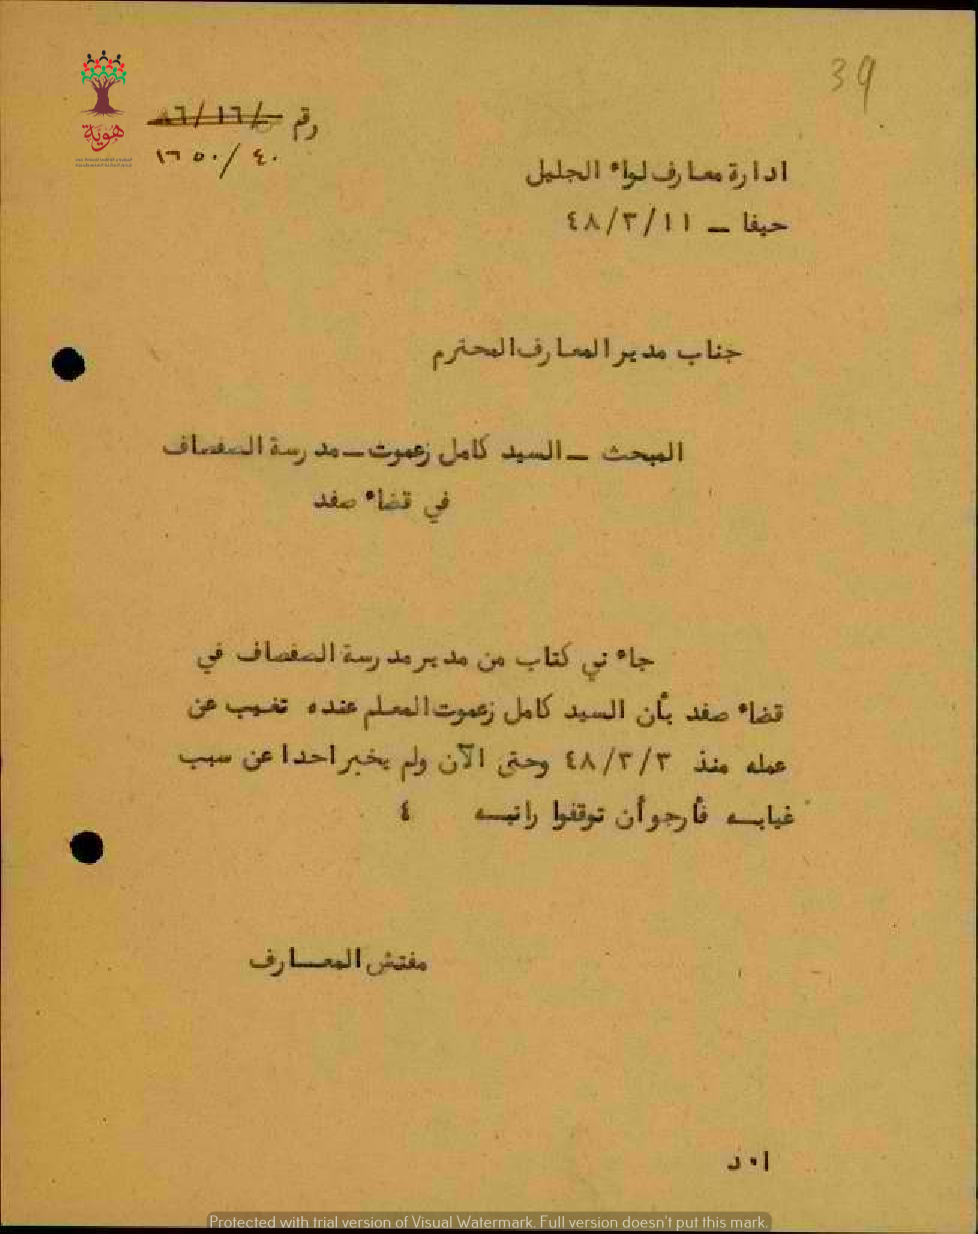 39
رقم ٨٦/١٦/
٤٠/١٦٥٠
ادارة معارف لواء الجليل
حيفا – ٤٨/٣/١١
جناب مدير المعارف المحترم
المبحث – السيد كامل زعموت – مدرسة الصفصاف
في قضاء صفد
جاءني كتاب من مدير مدرسة الصفصاف في
قضاء صفد بأن السيد كامل زعموت المعلم عنده تغيب عن
عمله منذ ٤٨/٣/٣ وحتى الآن ولم يخبر احدا عن سبب
غيابه فأرجو أن توقفوا راتبه ٤
مفتش المعارف
ا٠د
هوية
Protected with trial version of Visual Watermark. Full version doesn't put this mark.